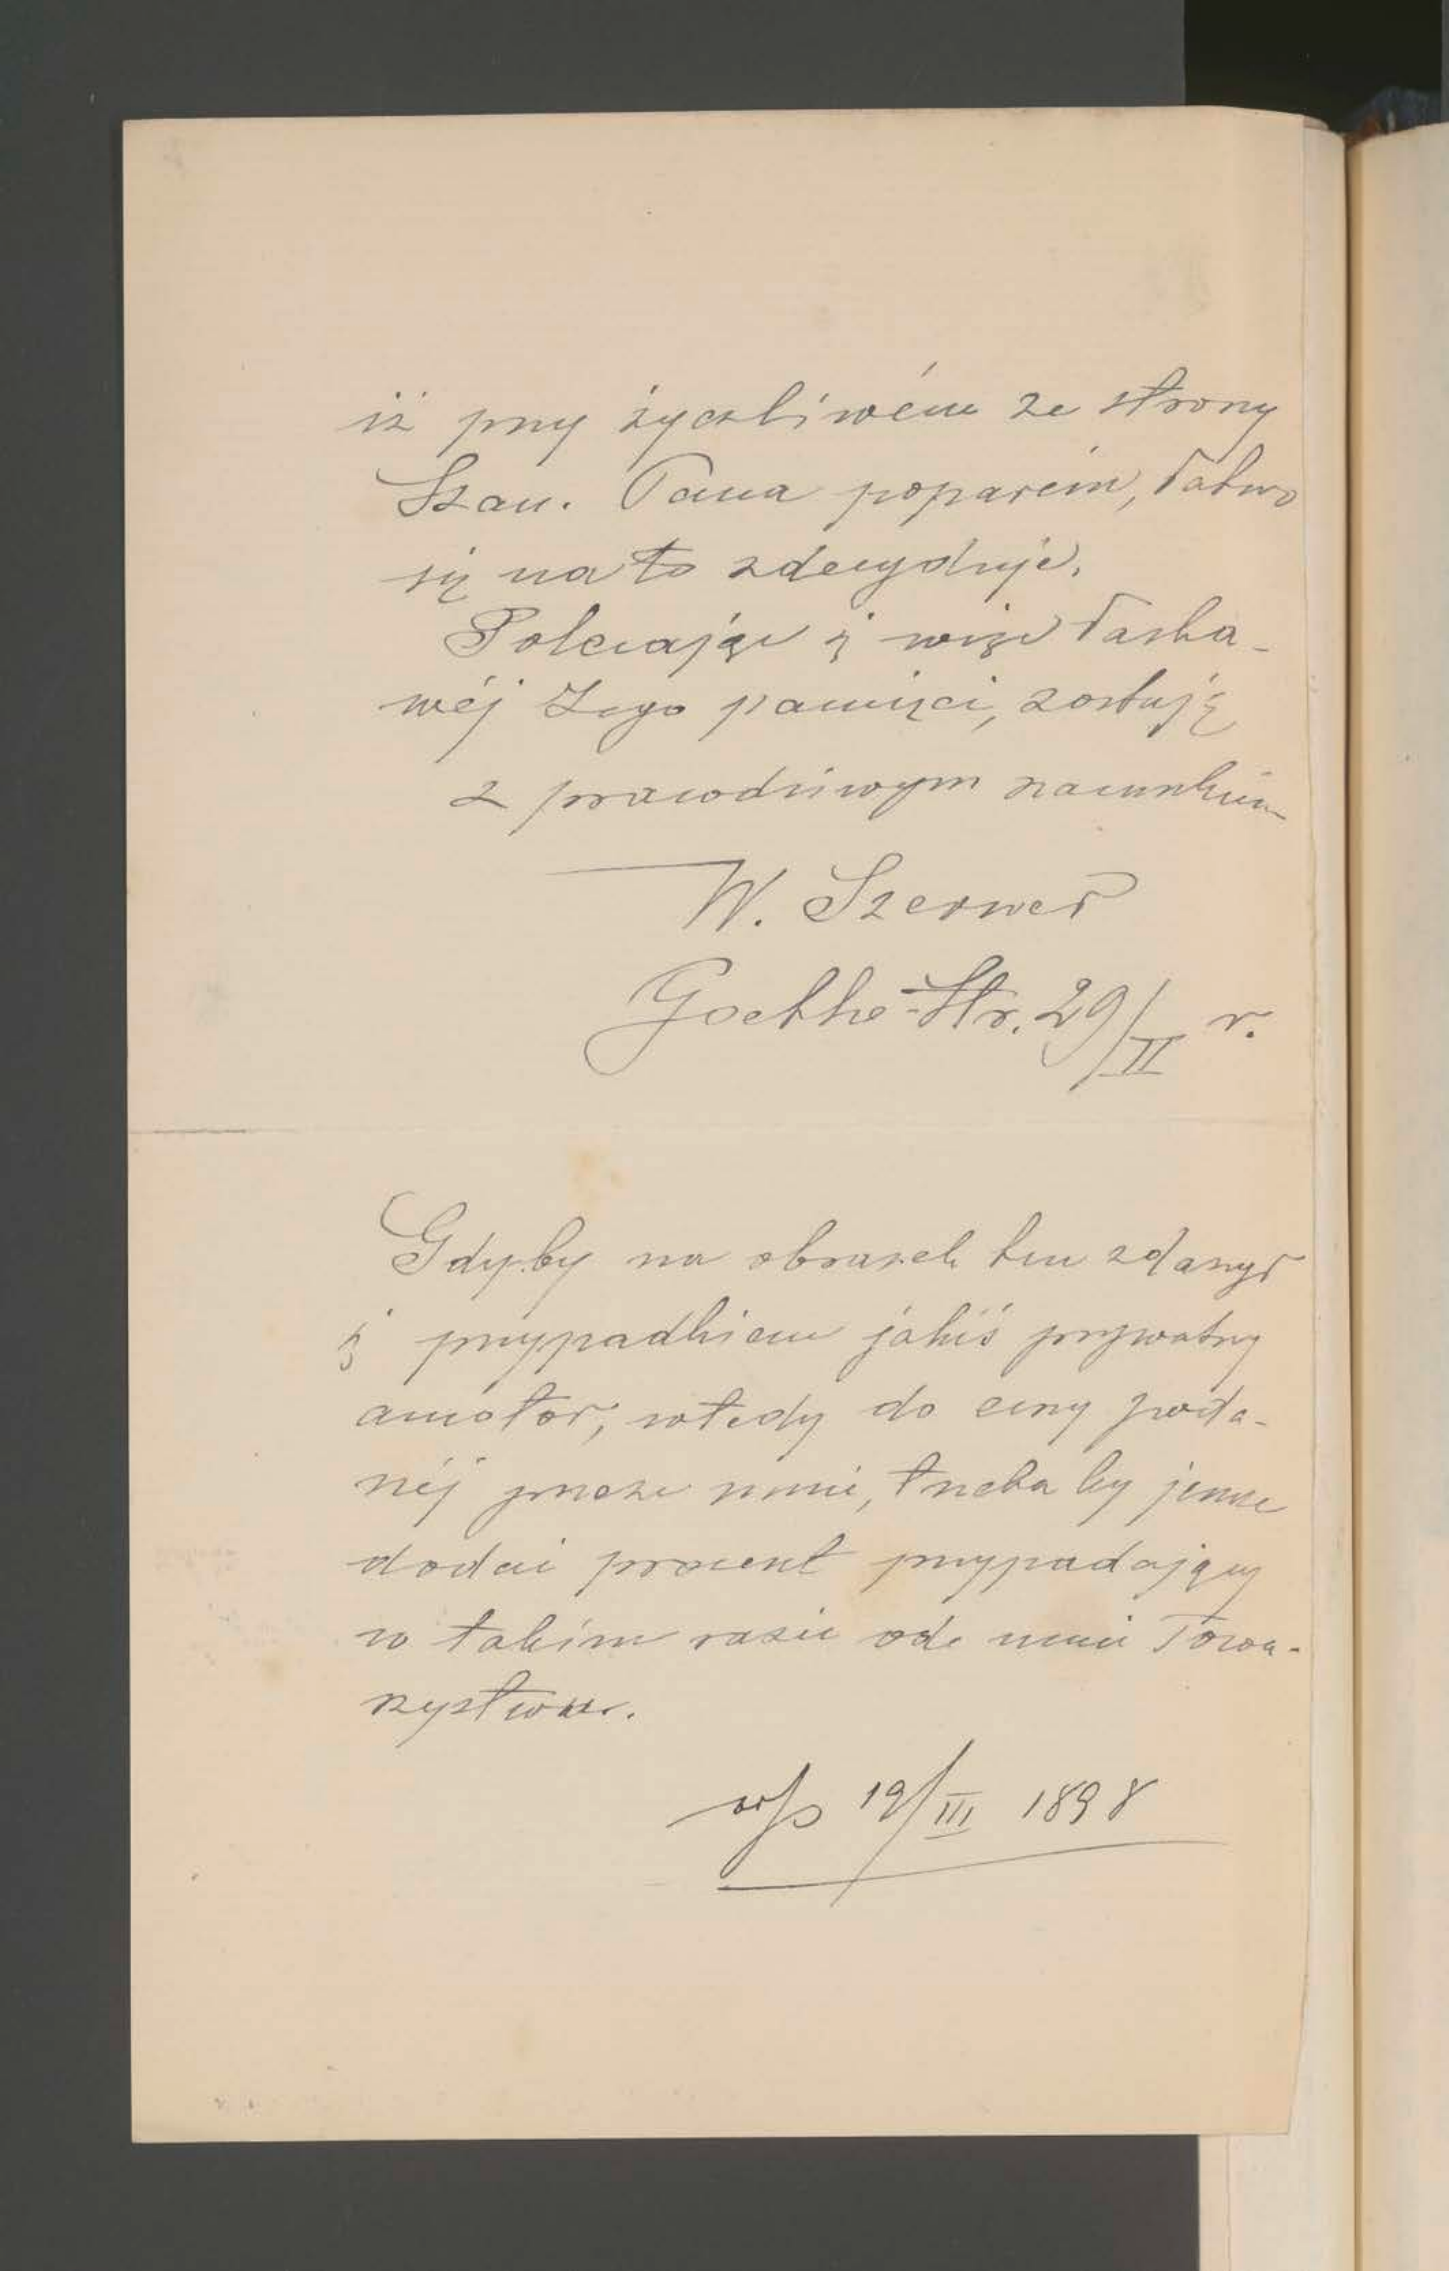 iż przy życzliwém ze strony
Szan. Pana poparciu, łatwo
się na to zdecyduje.
Polecając się więc łaska-
wéj Jego pamięci, zostaję
z prawdziwym szacunkiem
W. Szerner
Goethe-Str. 29/II r.
Gdyby na obrazek ten zdarzył
się przypadkiem jakiś prywatny
amator, wtedy do ceny poda-
néj przeze mnie, trzeba by jeszcze
dodać procent przypadający
w takim razie ode mnie Towa-
rzystwu.
19/III 1898